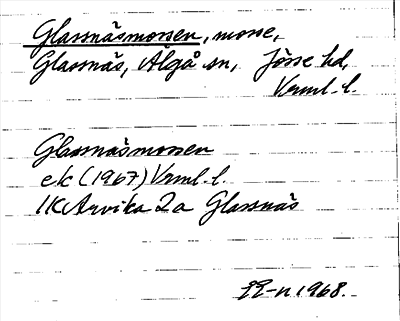 Glassnäsmossen, mosse,
Glassnäs, Älgå sn, Jösse hd,
Verml. l.
Glassnäsmossen
ek (1967) Verml. l.
11C Arvika 2a Glassnäs
1968.